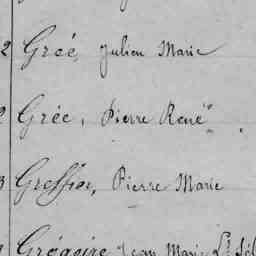 2 Greé, Julien Marie
2 Grée, Pierre René
3 Greffier, Pierre Marie
Grégoire Jean Marie